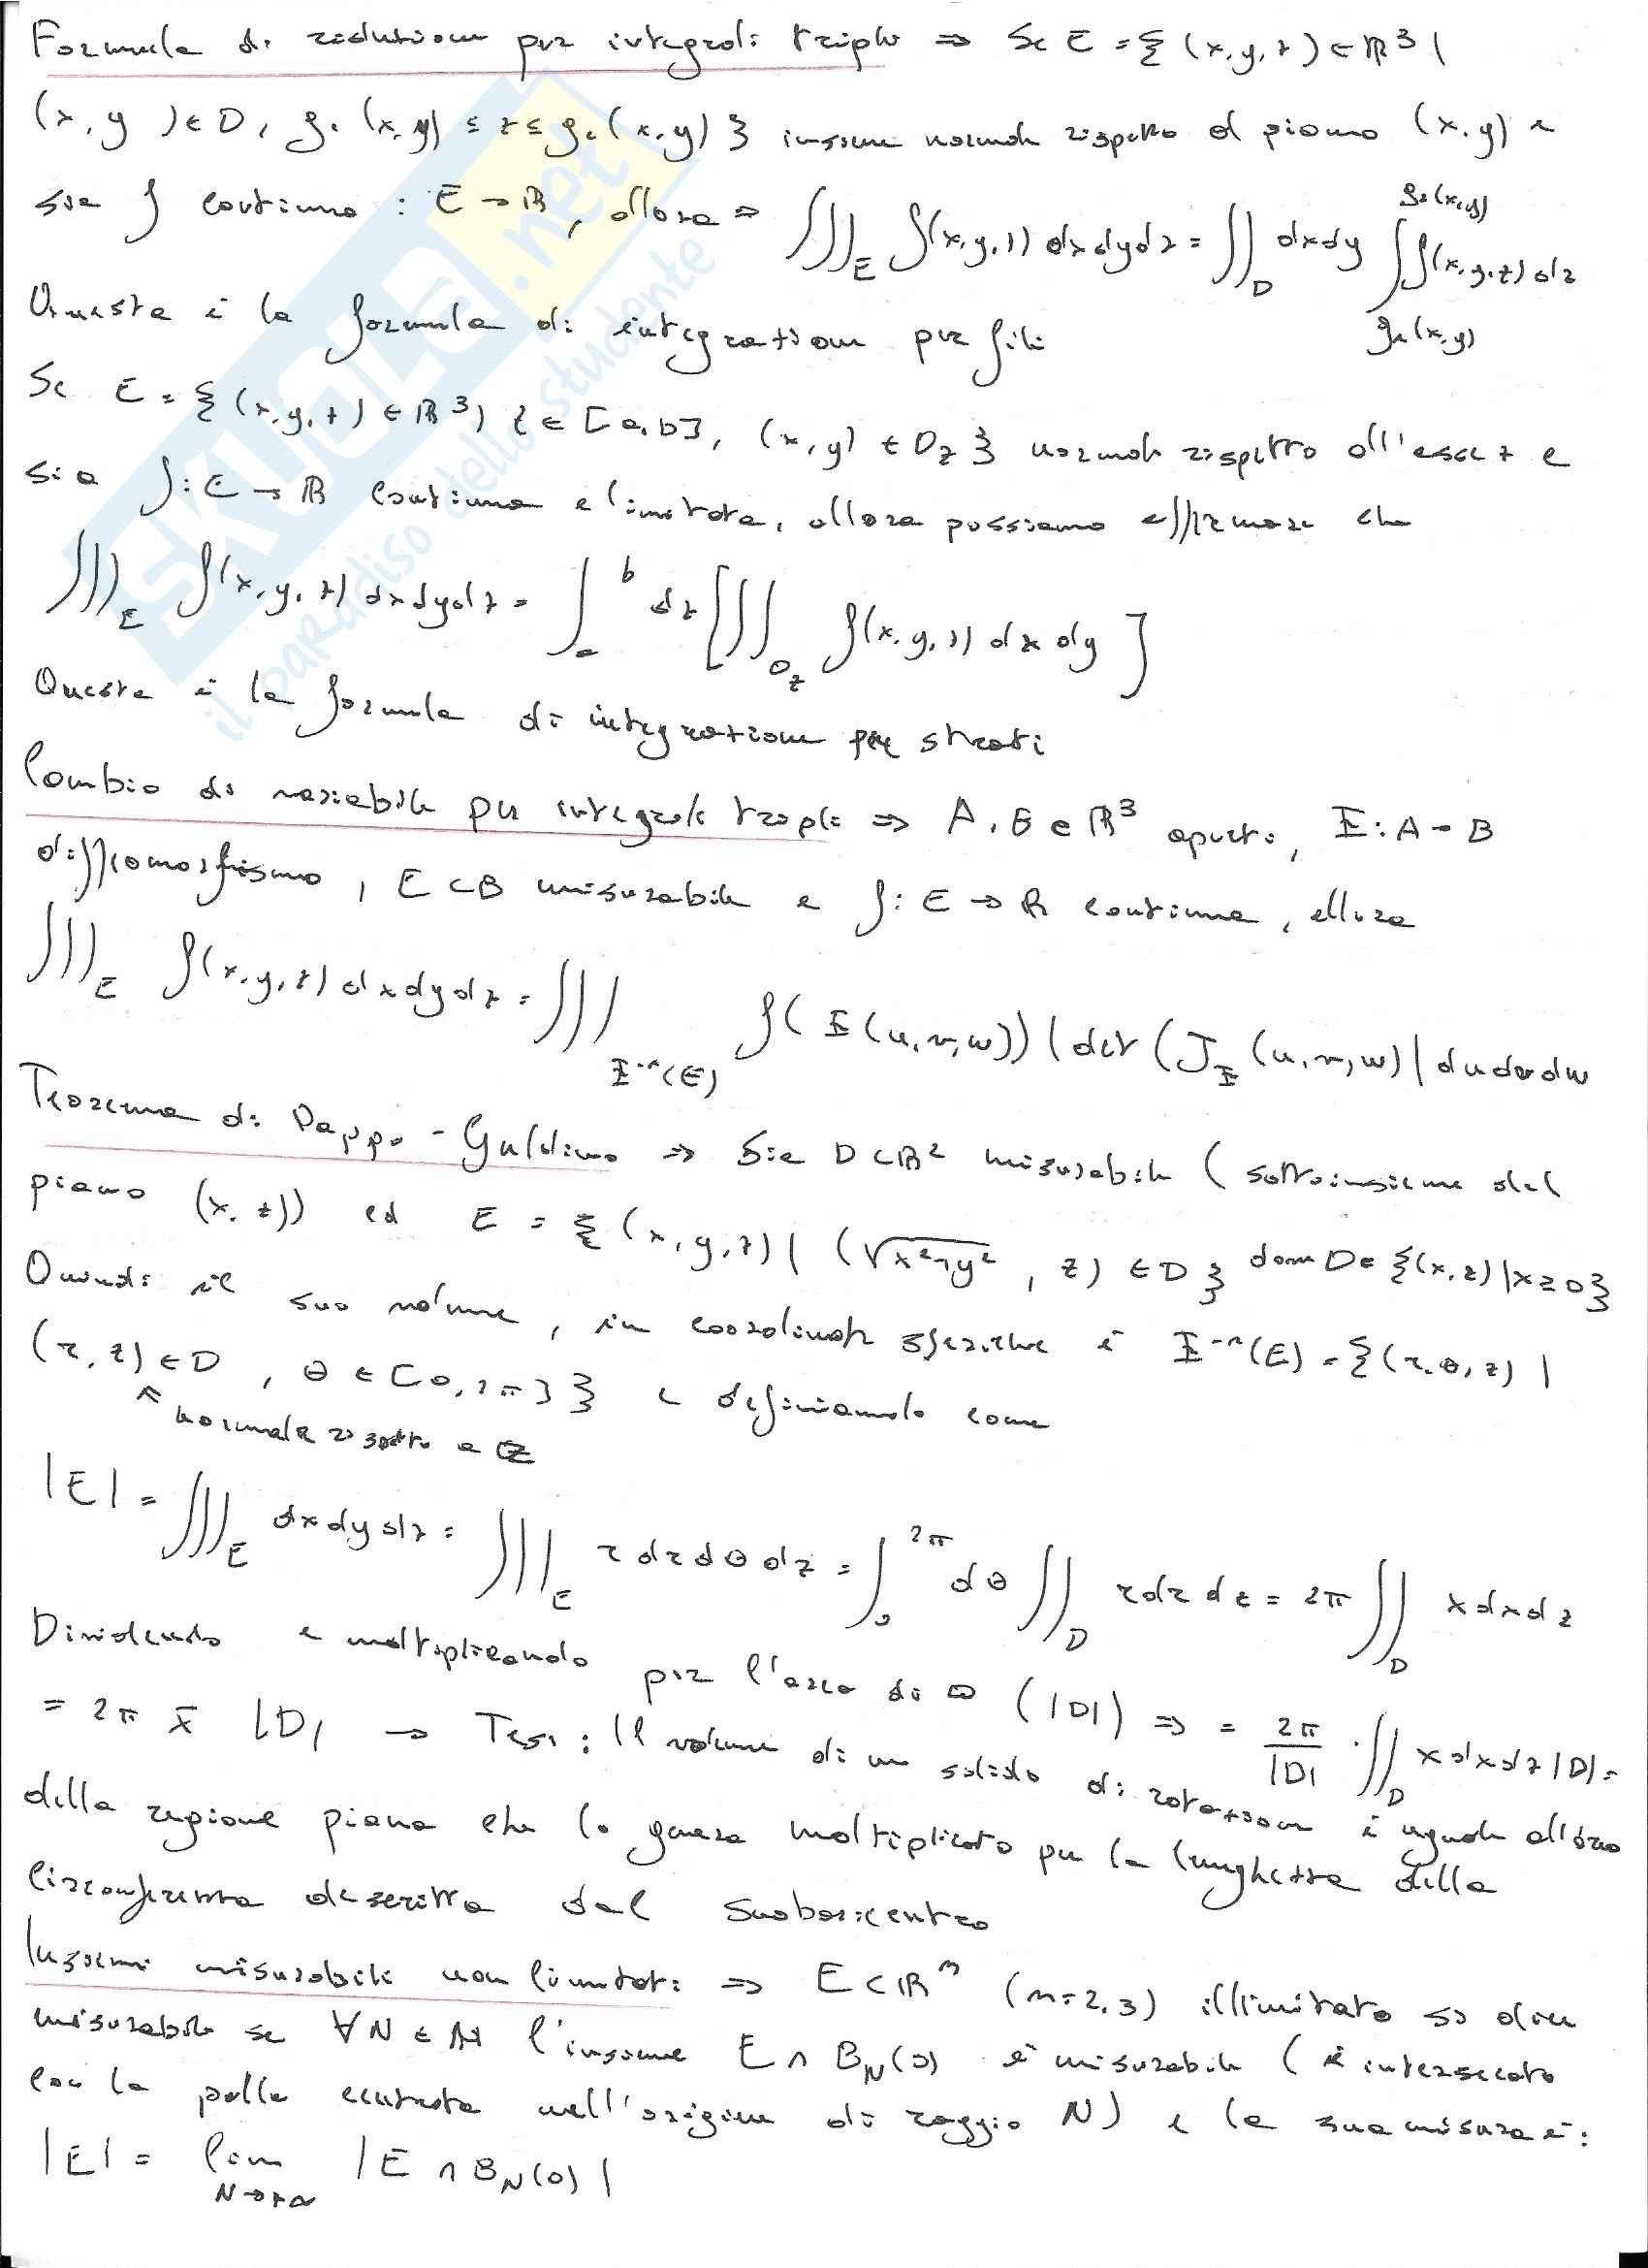 Formula di riduzione per integrali tripli ⇒ Se E = { (x,y,z) ∈ ℝ³ |
(x,y) ∈ D, g₁(x,y) ≤ z ≤ g₂(x,y) } insieme normale rispetto al piano (x,y) e
sia f continua : E → ℝ, allora ⇒ ∭_E f(x,y,z) dxdydz = ∬_D dxdy ∫_{g₁(x,y)}^{g₂(x,y)} f(x,y,z) dz
Questa è la formula di integrazione per fili
Se E = { (x,y,z) ∈ ℝ³ | z ∈ [a,b], (x,y) ∈ D_z } normale rispetto all'asse z e
sia f: E → ℝ continua e limitata, allora possiamo affermare che
∭_E f(x,y,z) dxdydz = ∫_a^b dz [ ∭_{D_z} f(x,y,z) dx dy ]
Questa è la formula di integrazione per strati
Cambio di variabile per integrali tripli ⇒ A, B ∈ ℝ³ aperti, Φ: A → B
diffeomorfismo, E ⊂ B misurabile e f: E → ℝ continua, allora
∭_E f(x,y,z) dxdydz = ∭_{Φ⁻¹(E)} f(Φ(u,v,w)) |det(J_Φ(u,v,w)| dudvdw
Teorema di Pappo-Guldino ⇒ Sia D ⊂ ℝ² misurabile (sottoinsieme del
piano (x,z)) ed E = { (x,y,z) | (√x²+y², z) ∈ D } dom D ∈ {(x,z) | x ≥ 0}
Quindi il suo volume, in coordinate sferiche è Φ⁻¹(E) = {(r,θ,z) |
(r,z) ∈ D, θ ∈ [0,2π] } e definiamolo come
↖ normale rispetto a z
|E| = ∭_E dxdydz = ∭_E r dr dθ dz = ∫_0^{2π} dθ ∬_D r dr dz = 2π ∬_D x dx dz
Dividendo e moltiplicando per l'area di D (|D|) ⇒ = 2π/|D| · ∬_D x dx dz |D| =
= 2π x̄ |D| → Tesi: Il volume di un solido di rotazione è uguale all'area
della regione piana che lo genera moltiplicato per la lunghezza della
circonferenza descritta dal suo baricentro
Insiemi misurabili non limitati ⇒ E ⊂ ℝⁿ (n=2,3) illimitato si dice
misurabile se ∀N ∈ ℕ l'insieme E ∩ B_N(0) è misurabile (è intersecato
con la palla centrata nell'origine di raggio N) e la sua misura è:
|E| = lim_{N→+∞} |E ∩ B_N(0)|
SKUOLA.net
il paradiso dello studente